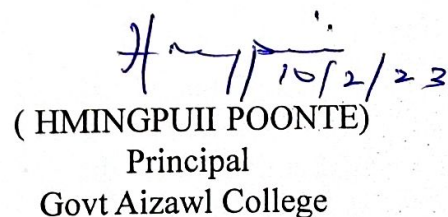 Hmingpuii
10/2/23
( HMINGPUII POONTE)
Principal
Govt Aizawl College